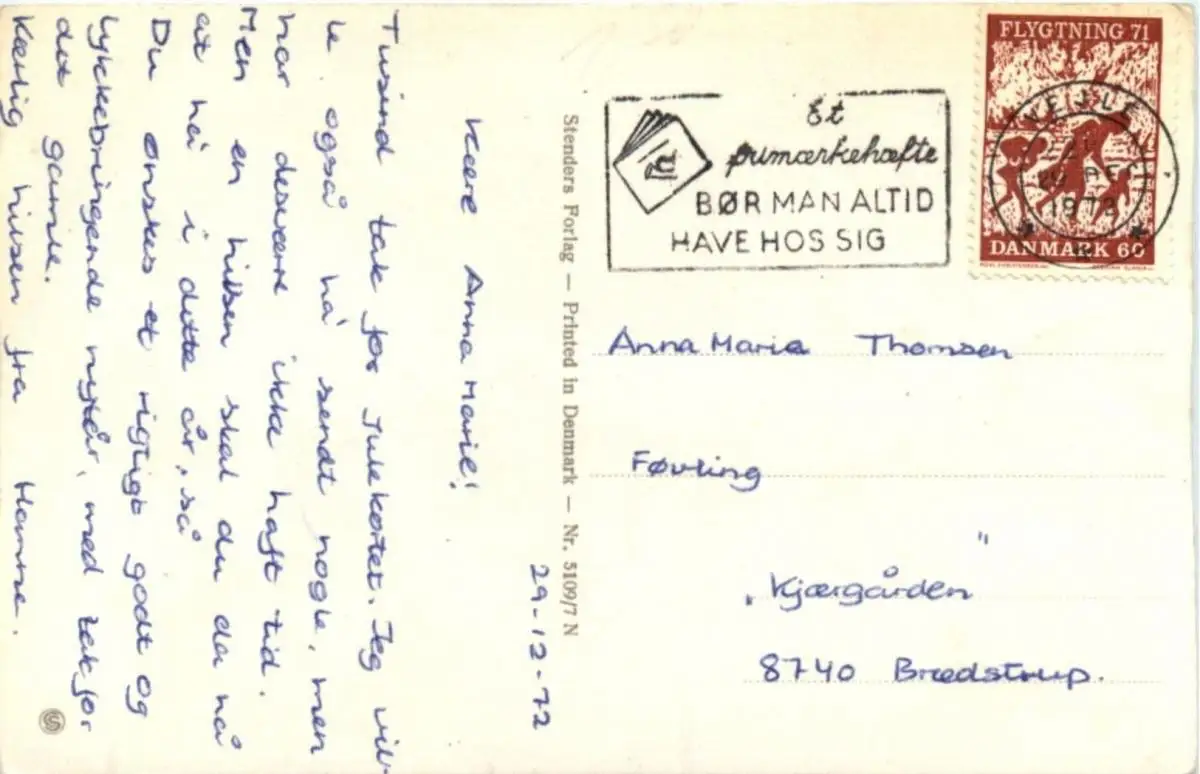 29-12-72
Kære Anna Marie!
Tusind tak for julekortet. Jeg vil-
le også nå sendt nogle, men
har desværre ikke haft tid.
Men en hilsen skal du da nå
at nå i dette år, så
Du ønskes et rigtigt godt og
lykkebringende nytår, med tak for
det gamle.
Kærlig hilsen fra Hanne.
Stenders Forlag — Printed in Denmark — Nr. 5109/7 N
S
Et
frimærkehæfte
BØR MAN ALTID
HAVE HOS SIG
FLYGTNING 71
DANMARK 60
VEJLE
29 DEC
1972
Anna Maria Thomsen
Føvling
"Kjærgården"
8740 Brædstrup.